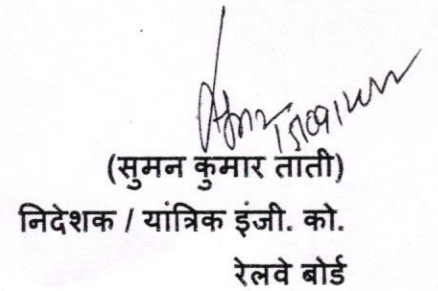 (सुमन कुमार ताती)
निदेशक / यांत्रिक इंजी. को.
रेलवे बोर्ड